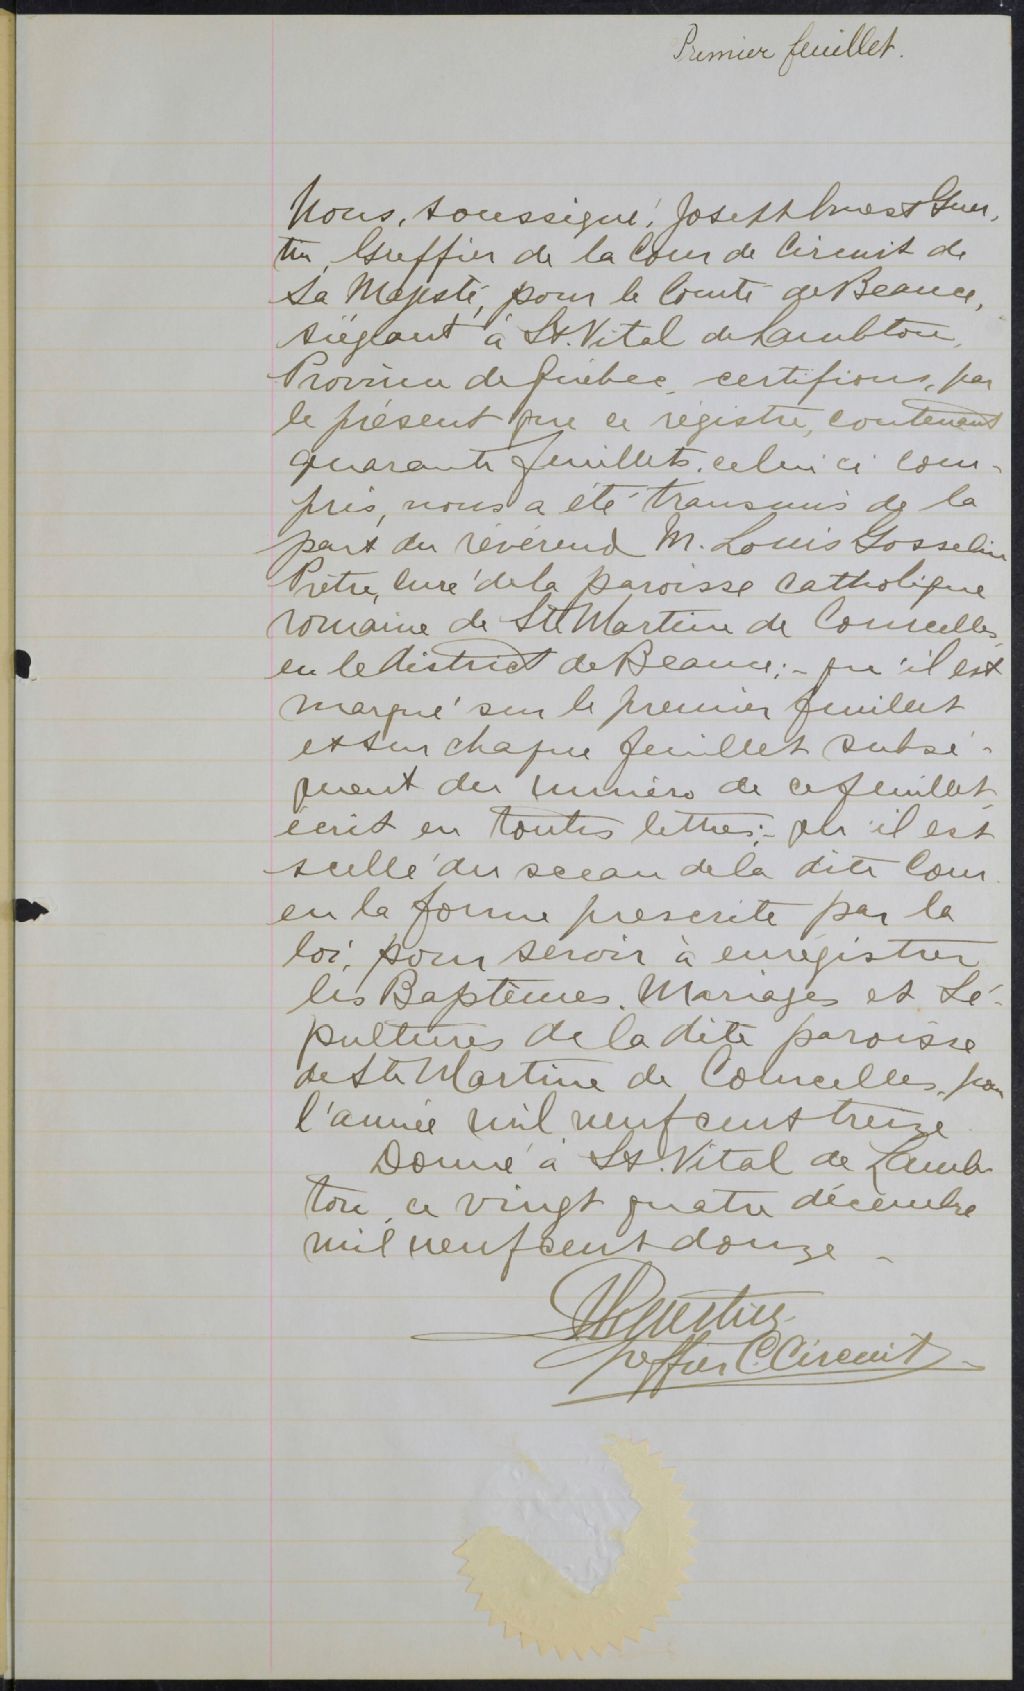 Premier feuillet.
Nous, soussigné, Joseph Ernest Guer,
tin, Greffier de la Cour de Circuit de
Sa Majesté, pour le Comté de Beauce,
siégeant à St. Vital de Lambton,
Province de Québec, certifions, par
le présent que ce régistre, contenant
quarante feuillets, celui ci com-
pris, nous a été transmis de la
part du révérend M. Louis Gosselin
Prêtre, Curé de la paroisse catholique
romaine de Ste Martine de Courcelles,
en le district de Beauce;- qu'il est
marqué sur le premier feuillet
et sur chaque feuillet subsé-
quent du numéro de ce feuillet,
écrit en toutes lettres;- qu'il est
scellé du sceau de la dite Cour
en la forme prescrite par la
loi, pour servir à enrégistrer
les Baptêmes, Mariages et Sé-
pultures de la dite paroisse
de Ste Martine de Courcelles, pour
l'année mil neuf cent treize
Donné à St. Vital de Lamb-
ton, ce vingt quatre décembre
mil neuf cent douze -
Guertin
Greffier C. Circuit